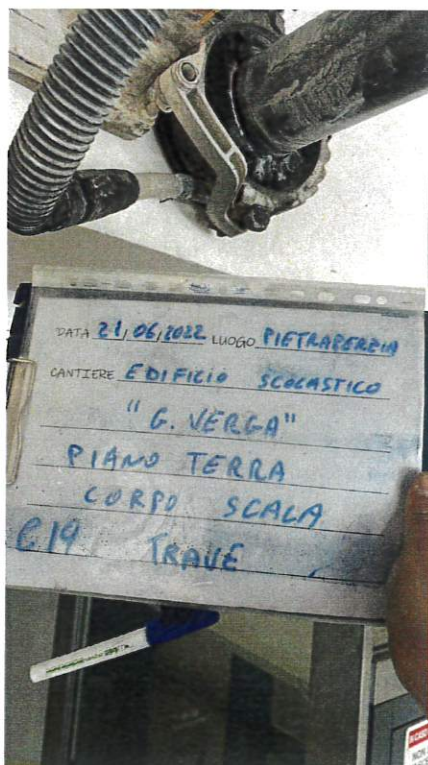 DATA 21/06/2022 LUOGO PIETRAPERZIA
CANTIERE EDIFICIO SCOLASTICO
"G. VERGA"
PIANO TERRA
CORPO SCALA
C19 TRAVE
IN CASO
NON